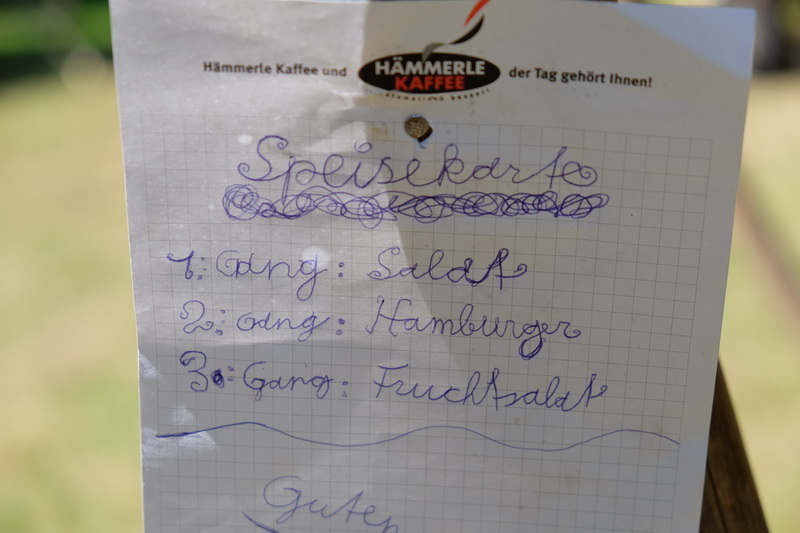 Hämmerle Kaffee und HÄMMERLE KAFFEE der Tag gehört Ihnen!
Speisekarte
1: Gang: Salat
2: Gang: Hamburger
3: Gang: Fruchtsalat
Guten